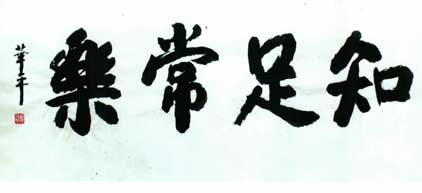 知足常樂
華平